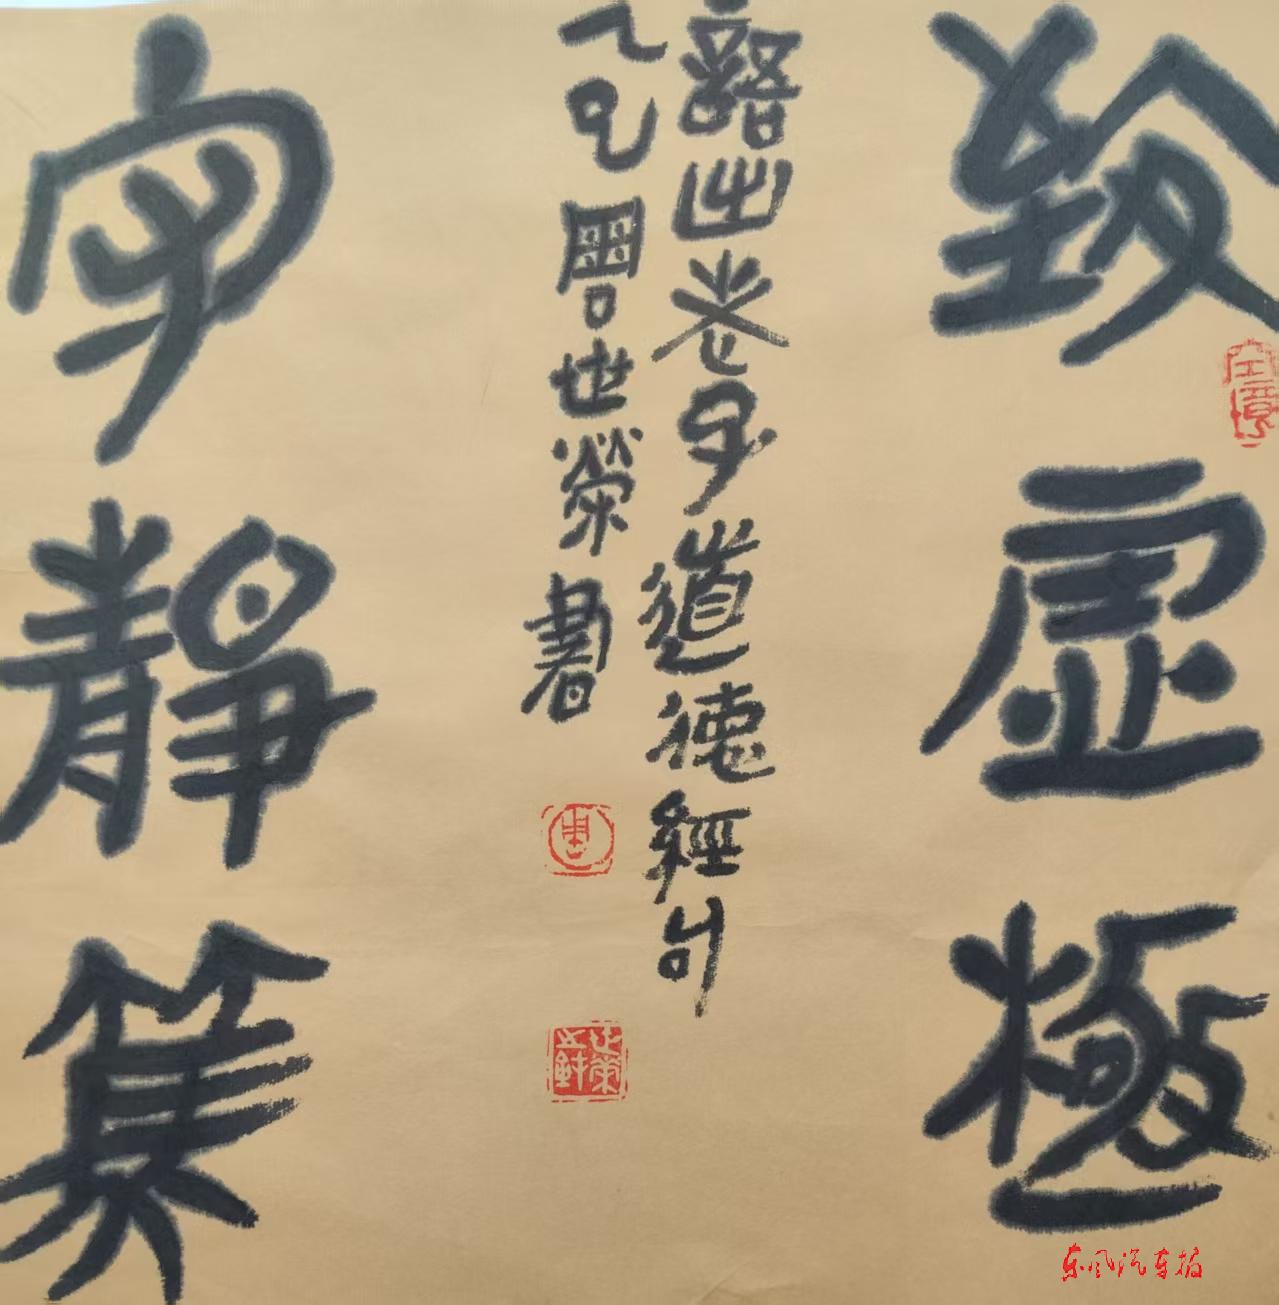 致虛極
守靜篤
語出老子道德經
乙巳周世榮書
周
东风汽车报